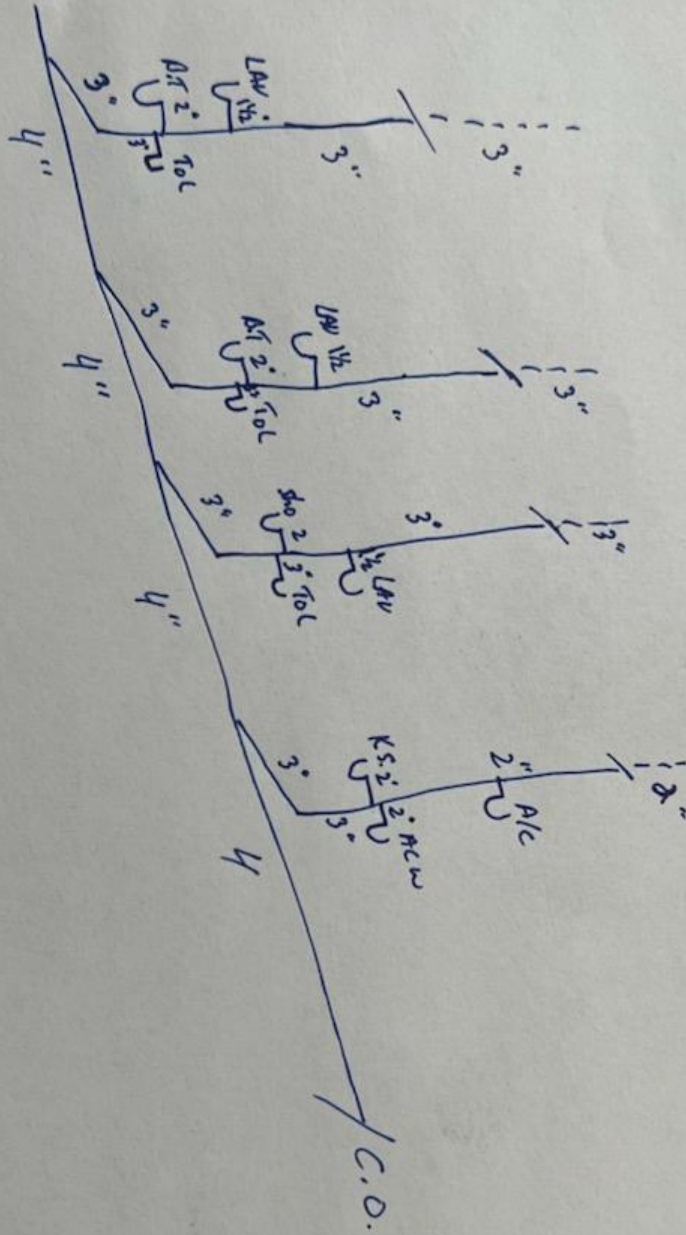 3"
B.T 2"
LAV 1½"
3" TOL
3"
3"
4"
3"
B.T 2"
LAV 1½
3" TOL
3"
3"
4"
3"
sho 2
3" TOL
1½ LAV
3"
3"
4"
3"
K.S. 2"
2" ACW
3"
2"
A/C
2"
4
C.O.